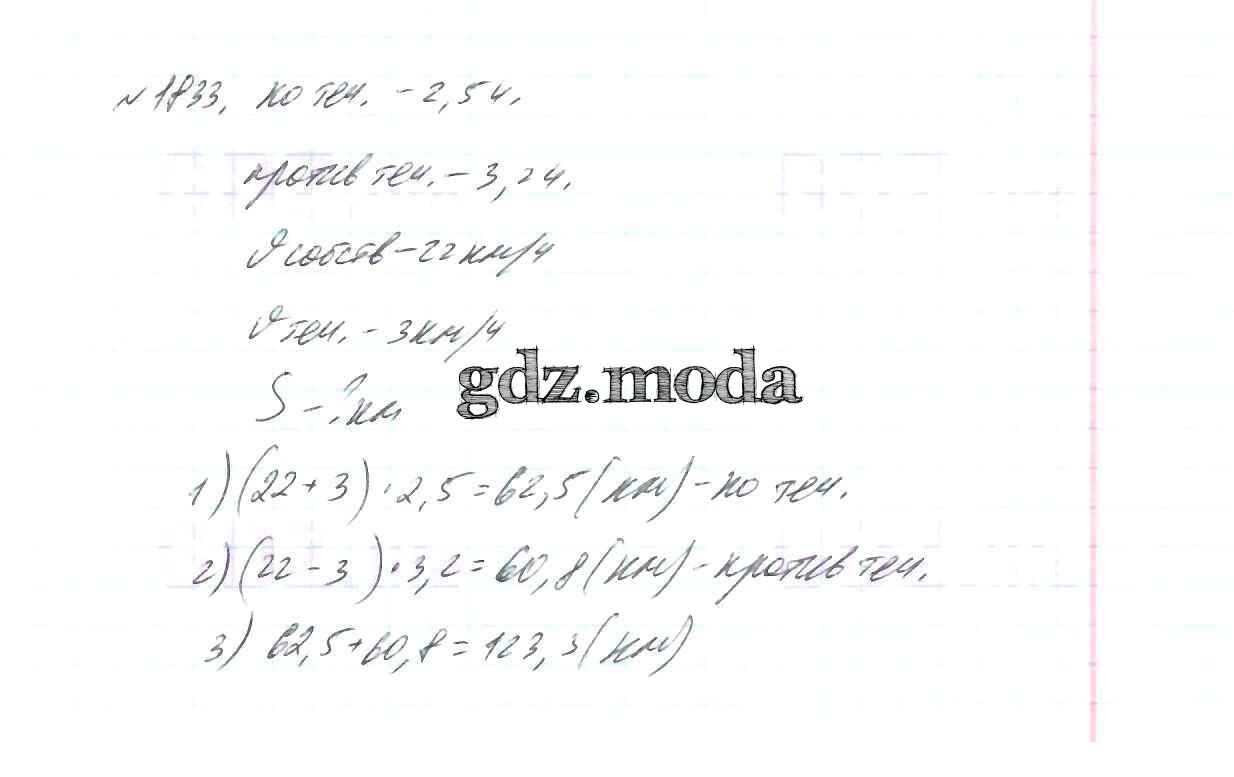 №1833. по теч. - 2,5ч.
против теч. - 3,2ч.
υ собств - 22 км/ч
υ теч. - 3км/ч
gdz.moda
S - ? км
1) (22+3)·2,5=62,5(км) - по теч.
2) (22-3)·3,2=60,8(км) - против теч.
3) 62,5+60,8=123,3(км)